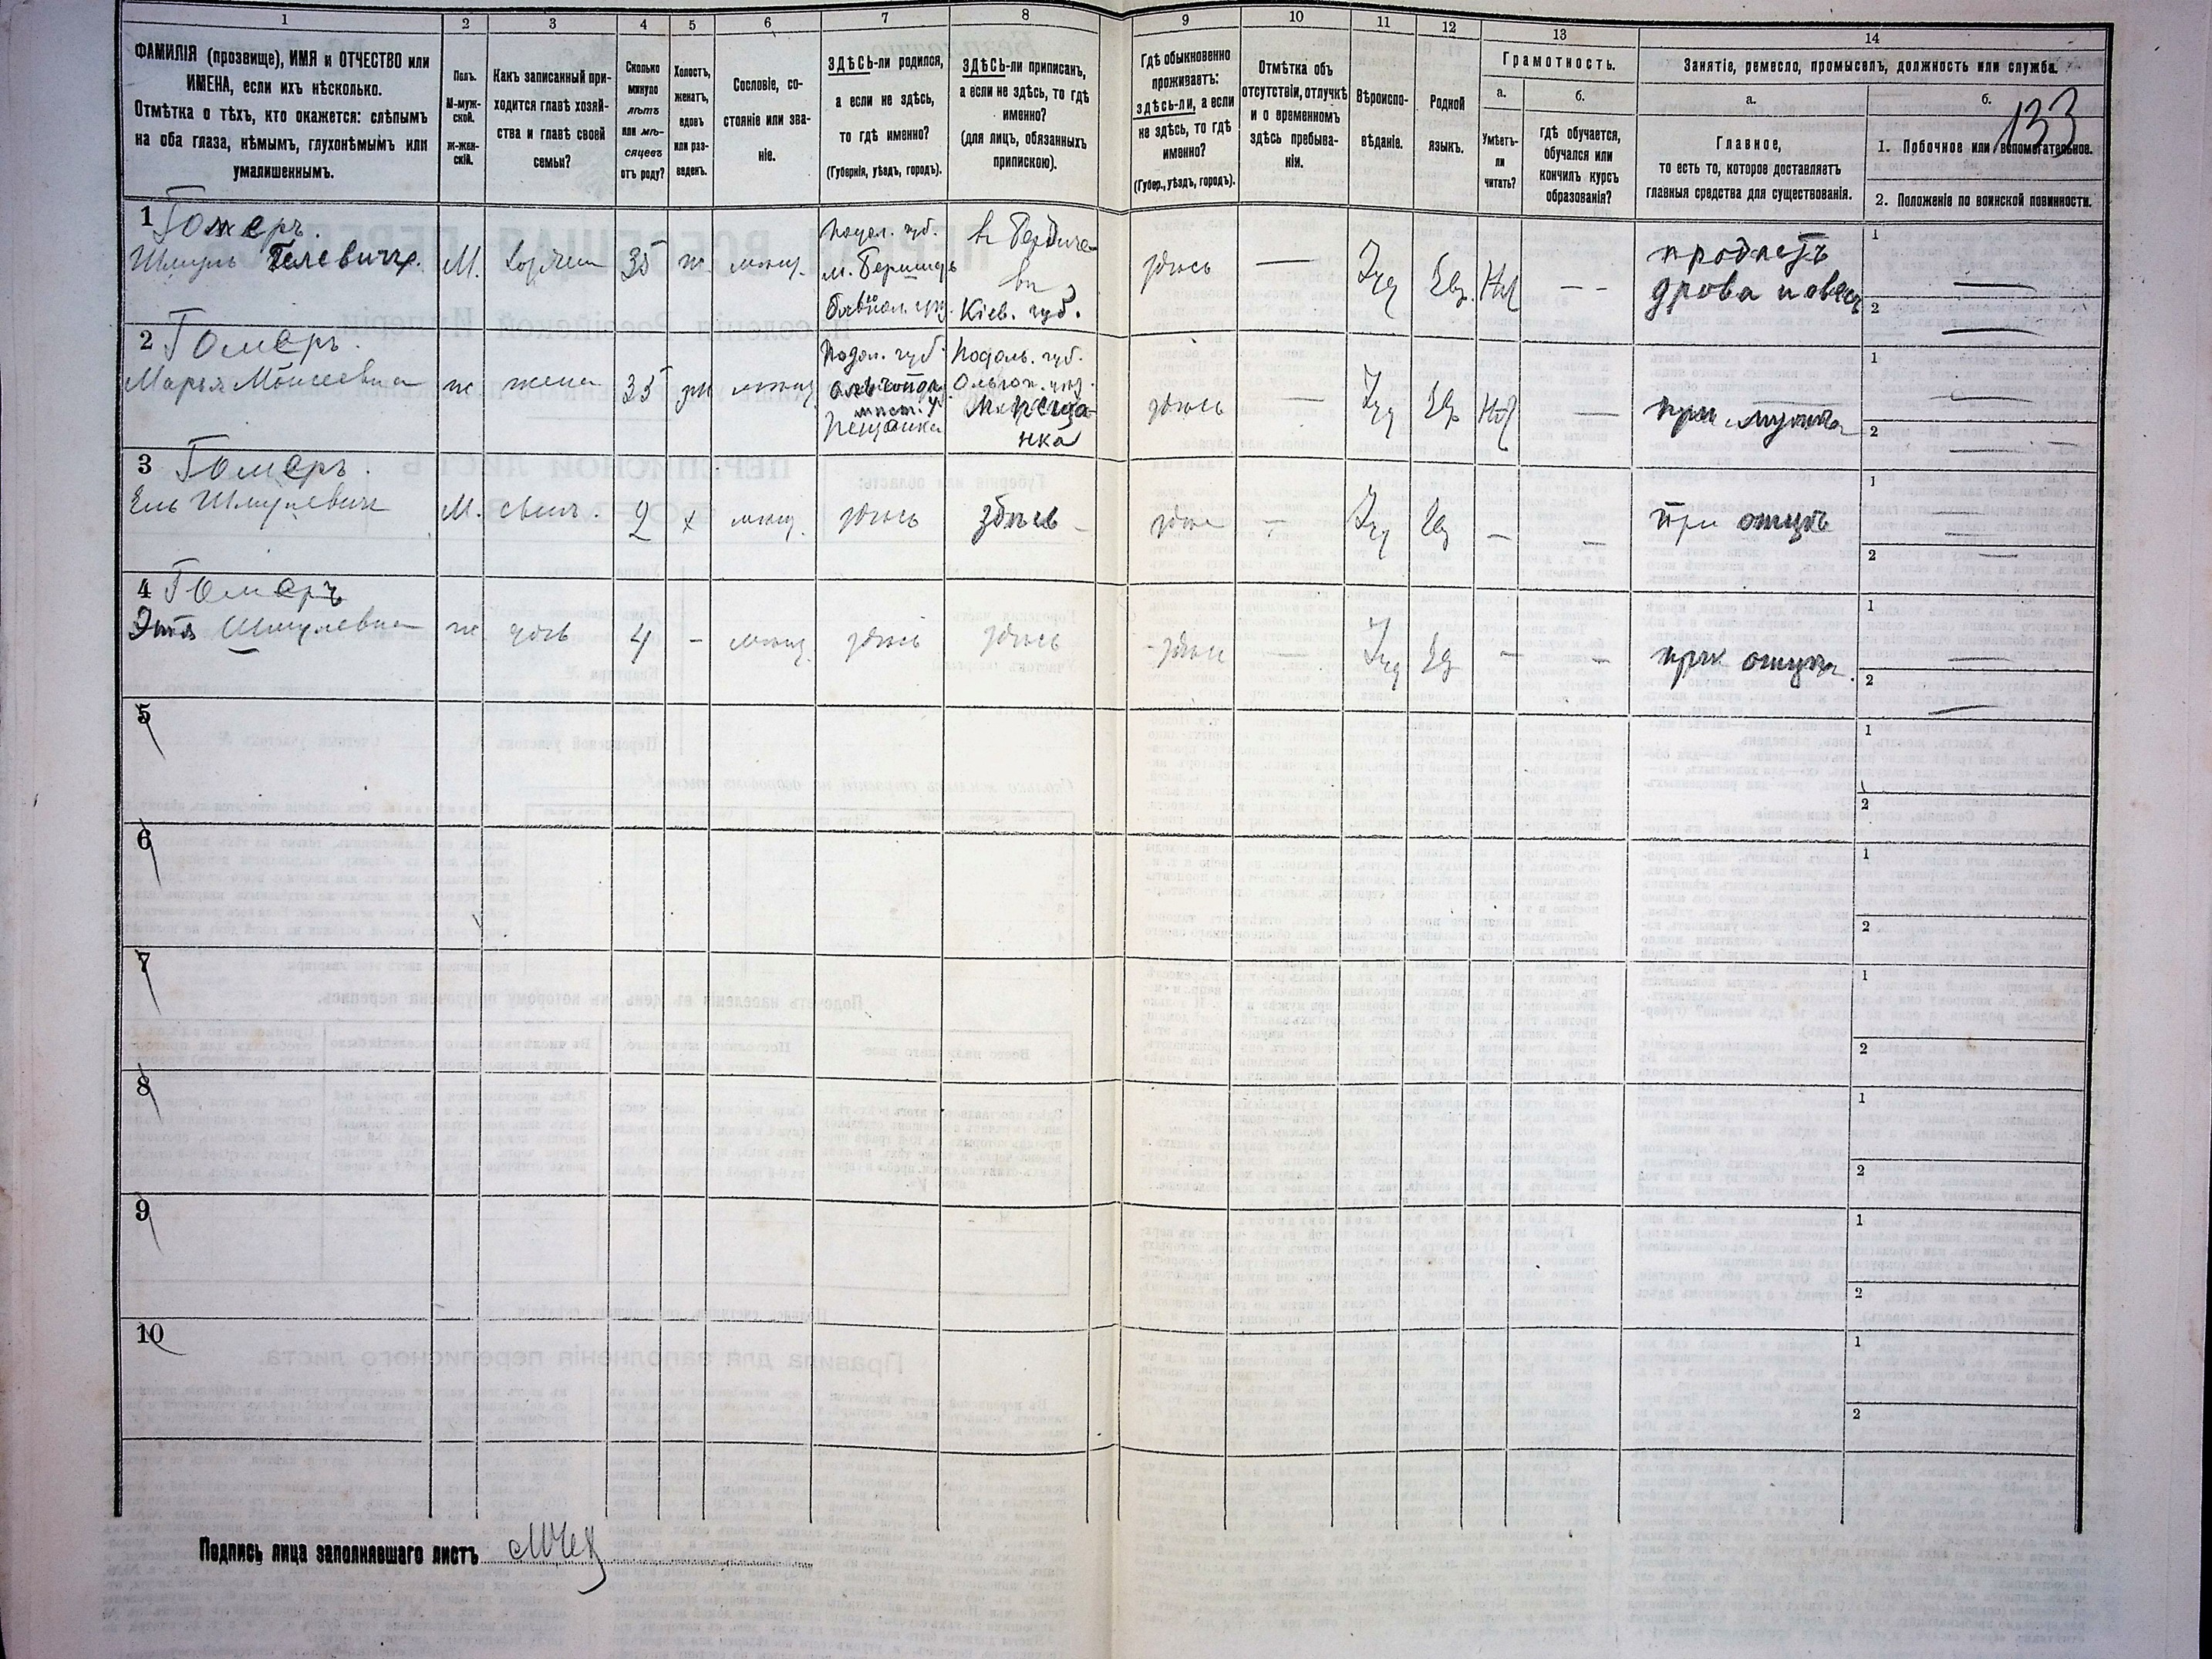 1 2 3 4 5 6 7 8 9 10 11 12 13 14
ФАМИЛІЯ (прозвище), ИМЯ и ОТЧЕСТВО или
ИМЕНА, если ихъ нѣсколько.
Отмѣтка о тѣхъ, кто окажется: слѣпымъ
на оба глаза, нѣмымъ, глухонѣмымъ или
умалишеннымъ.
Полъ.
М-муж-
ской.
ж-жен-
скій.
Какъ записанный при-
ходится главѣ хозяй-
ства и главѣ своей
семьи?
Сколько
минуло
лѣтъ
или мѣ-
сяцевъ
отъ роду?
Холостъ,
женатъ,
вдовъ
или раз-
веденъ.
Сословіе, со-
стояніе или зва-
ніе.
ЗДѢСЬ-ли родился,
а если не здѣсь,
то гдѣ именно?
(Губернія, уѣздъ, городъ).
ЗДѢСЬ-ли приписанъ,
а если не здѣсь, то гдѣ
именно?
(для лицъ, обязанныхъ
припискою).
Гдѣ обыкновенно
проживаетъ:
здѣсь-ли, а если
не здѣсь, то гдѣ
именно?
(Губер., уѣздъ, городъ).
Отмѣтка объ
отсутствіи, отлучкѣ
и о временномъ
здѣсь пребыва-
ніи.
Вѣроиспо-
вѣданіе.
Родной
языкъ.
Грамотность.
а.
Умѣетъ-
ли
читать?
б.
гдѣ обучается,
обучался или
кончилъ курсъ
образованія?
Занятіе, ремесло, промыселъ, должность или служба.
а.
Главное,
то есть то, которое доставляетъ
главныя средства для существованія.
б.
133
1. Побочное или вспомогательное.
2. Положеніе по воинской повинности.
1 Гомеръ.
Шмуль М. 35 ж. мѣщ. здѣсь — Іуд Евр. Нѣт — —
Подол. губ.
Кіев. губ.
продаетъ
дрова
1 —
2 —
2 Гомеръ.
Марья Моисеевна ж жена 35 мѣщ здѣсь — Іуд Евр Нѣт — при мужѣ
Подол. губ.
Подоль. губ.
1 —
2 —
3 Гомеръ.
Ель Шмулевичъ М. сынъ. 2 х мѣщ. здѣсь здѣсь здѣсь — Іуд Евр — — при отцѣ
1 —
2 —
4 Гомеръ
Шмулевна ж дочь 4 - мѣщ. здѣсь здѣсь здѣсь — Іуд Евр — — при отцѣ.
1 —
2 —
5
1
2
6
1
2
7
1
2
8
1
2
9
1
2
10
1
2
Подпись лица заполнявшаго листъ